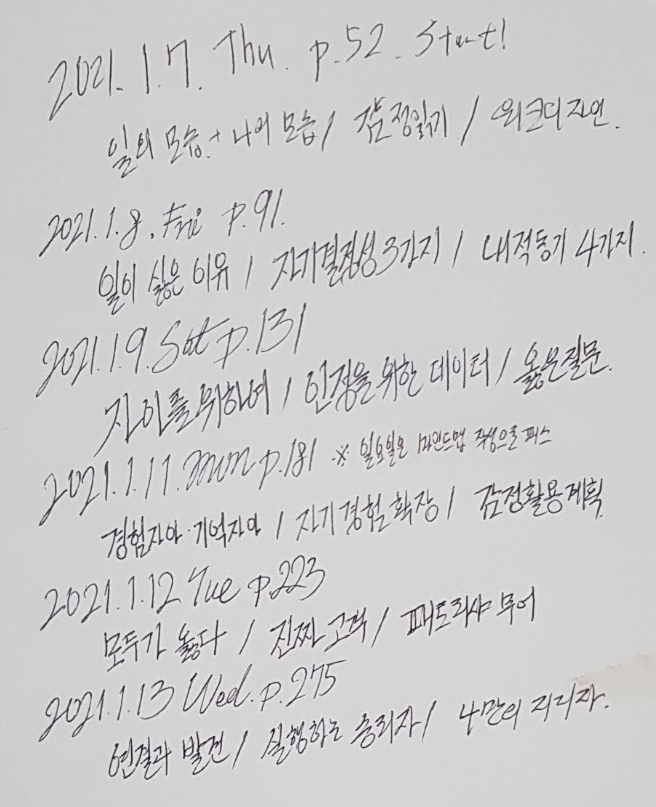 2021. 1. 7. Thu. p.52. Start!
일의 모습 + 나의 모습 / 감정읽기 / 워크디자인.
2021.1.8. Fri p.91.
일이 싫은 이유 / 자기결정성 3가지 / 내적동기 4가지.
2021.1.9. Sat p.131
자아를 위하여 / 인정을 위한 데이터 / 옳은질문.
2021.1.11. mon p.181 ※ 일요일은 마인드맵 작성으로 패스
경험자아·기억자아 / 자기경험 확장 / 감정활용계획
2021.1.12 Tue p.223
모두가 옳다 / 진짜 고객 / 패트리샤 무어
2021.1.13 Wed. p.275
연결과 발견 / 실행하는 승리자 / 나만의 지지자.